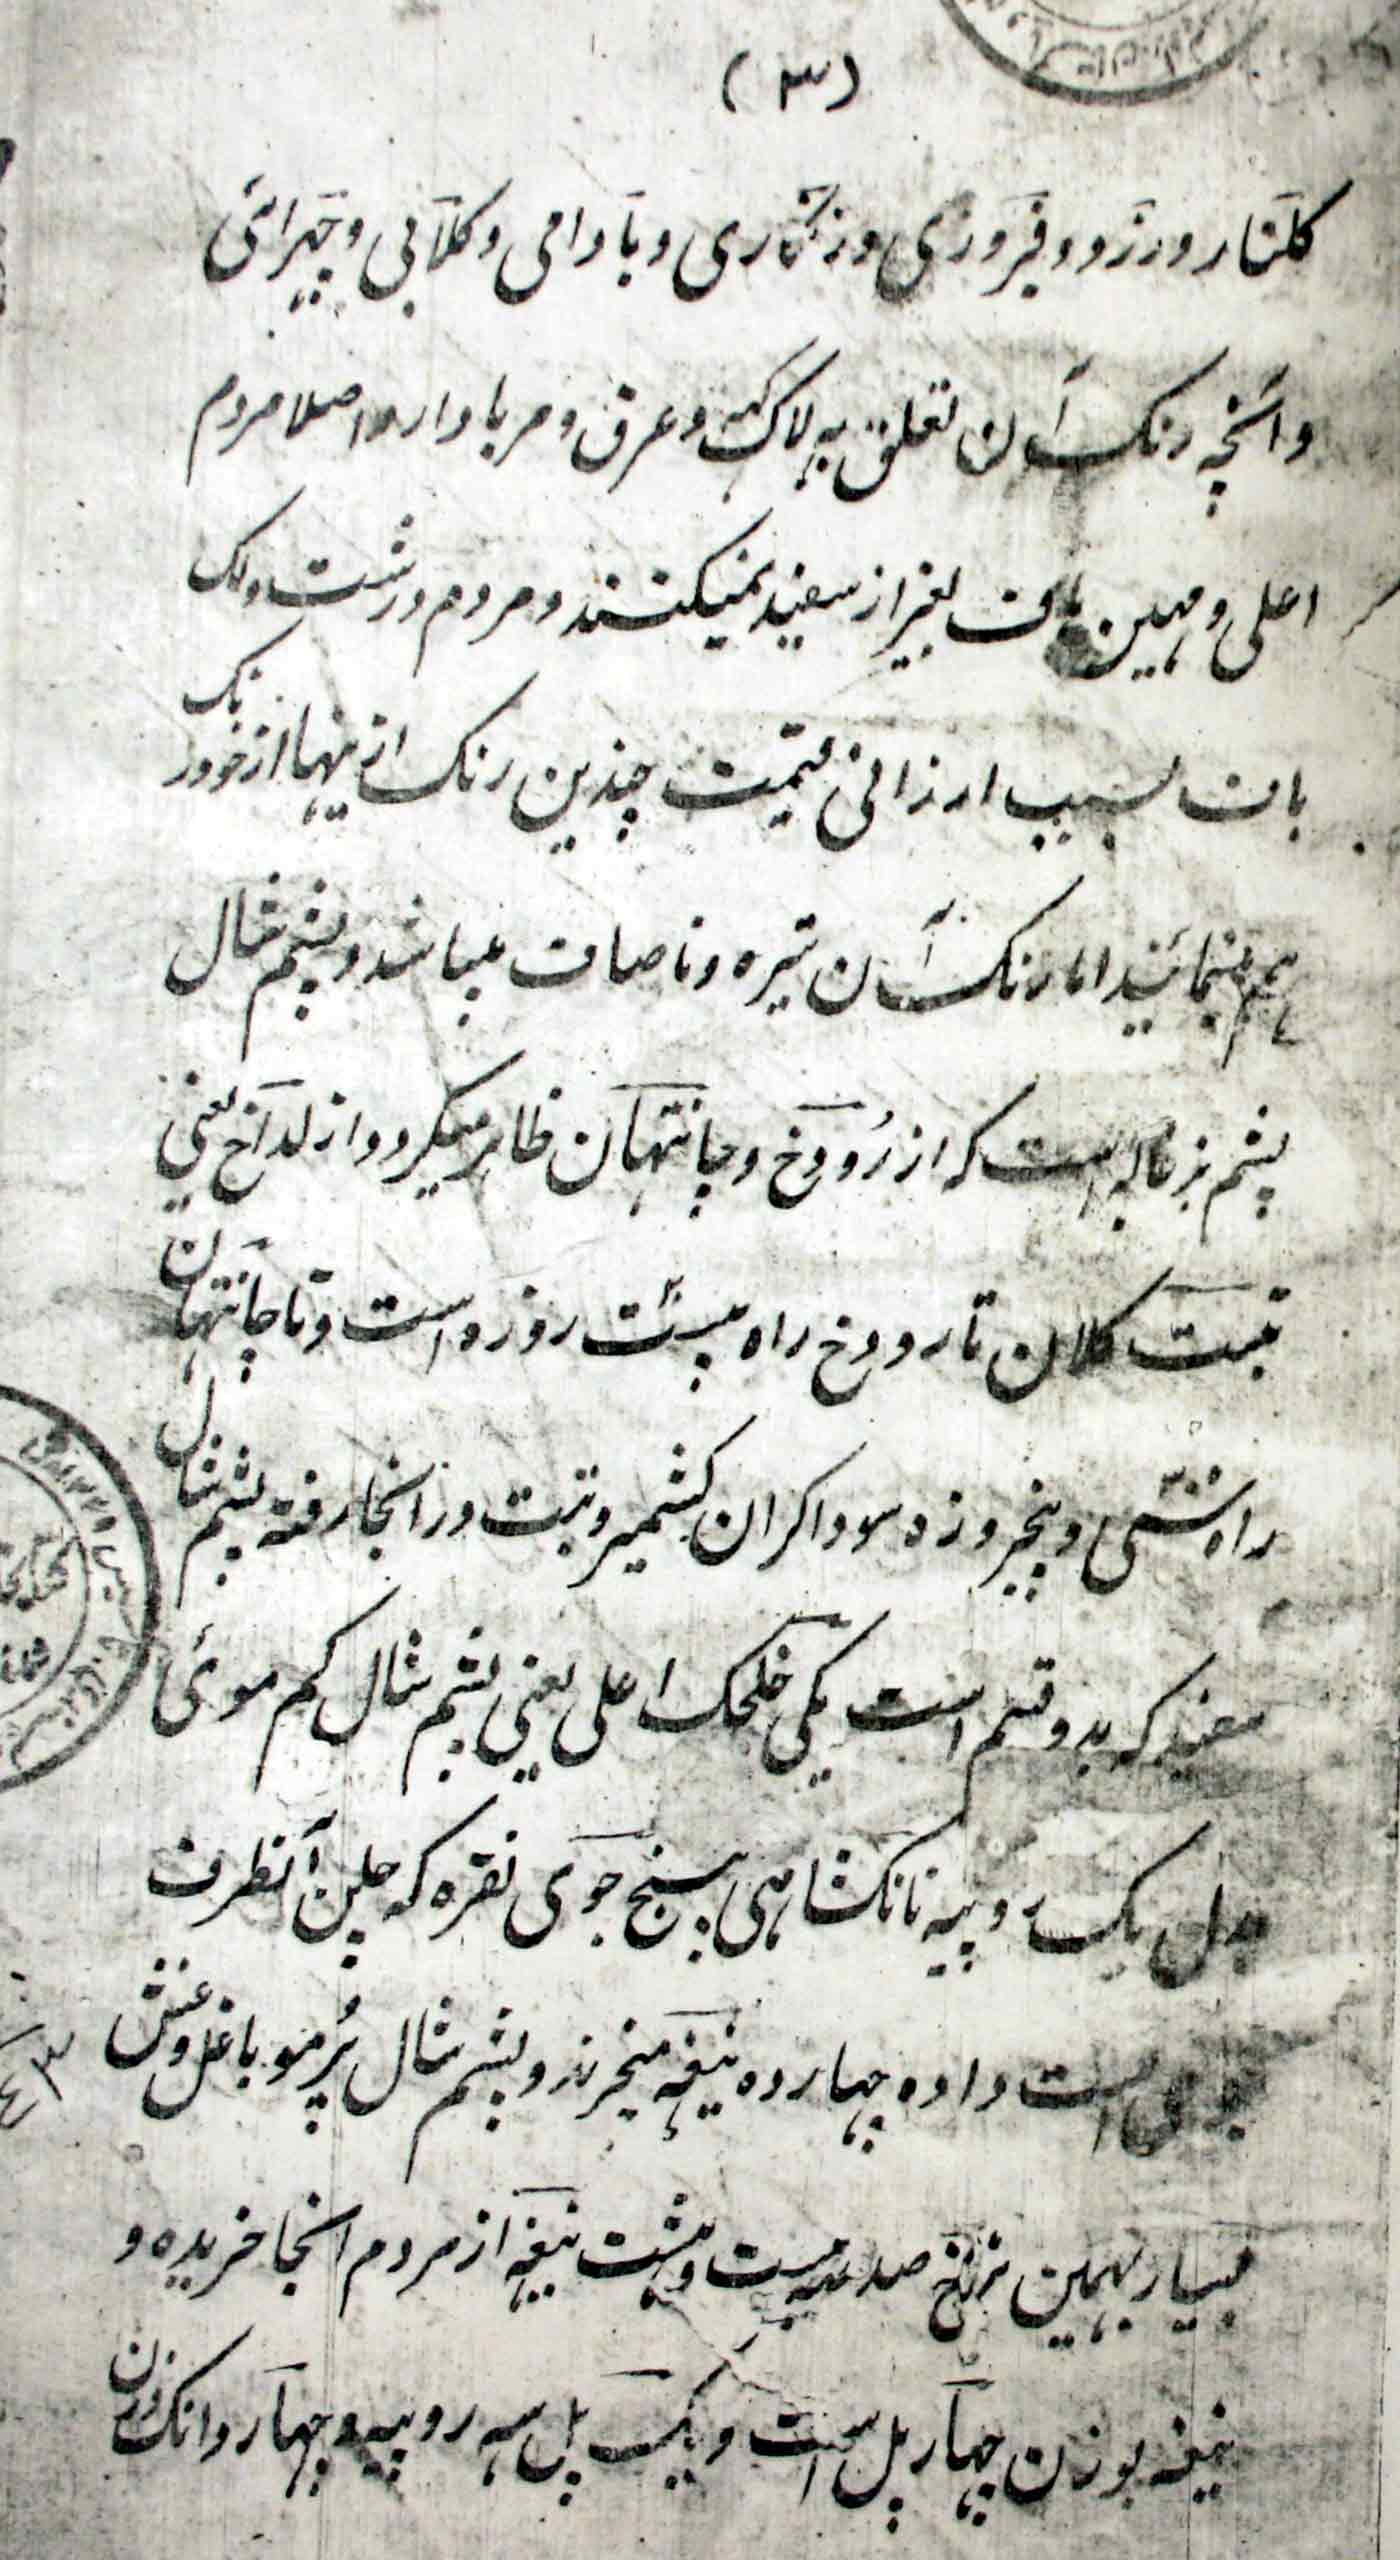 (۳)
کلنار و زرد و فیروزی و زنگاری و بادامی و کلابی و چهرائی
و آنچه رنک آن تعلق به لاک و عرق و مربا دارد اصلا مردم
اعلی و مهین باف بغیر از سفید نمیکنند و مردم درشت و لک
باف بسبب ارزانی قیمت چندین رنک ازینها از خود رنک
هم مینمایند اما رنک آن تیره و ناصاف میباشد و پشم شال
پشم بزغاله است که از رُودخ و چانتهان ظاهر میکردد از لداخ یعنی
تبت کلان تا رودخ راه بیست روزه است و تا چانتهان
راه سی و پنجروزه سوداکران کشمیر و تبت در انجا رفته پشم شال
سفید که بدو قسم است یکی خلحک اعلی یعنی پشم شال کم موئی
بدل یک روپیه نانکشاهی پنج جوی نقره که چلن آنطرف
است داده چهارده نیغه میخرند و پشم شال پُر مو با غل و غش
بسیار بهمین نرخ صد بیست و هشت نیغه از مردم انجا خریده و
نیغه بوزن چهار پل است و یک پل سه روپیه و چهار دانک وزن